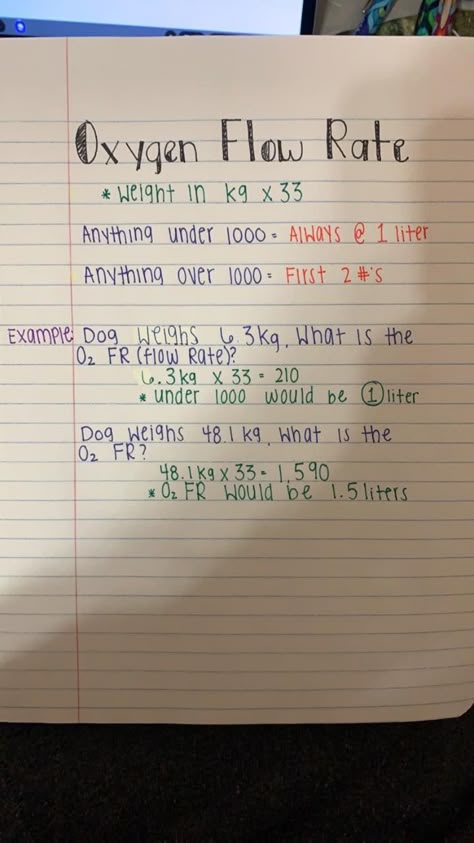 Oxygen Flow Rate
* Weight in kg x 33
Anything under 1000 = Always @ 1 liter
Anything over 1000 = First 2 #'s
Example: Dog weighs 6.3kg, What is the
O₂ FR (flow Rate)?
6.3kg x 33 = 210
* under 1000 would be ① liter
Dog weighs 48.1 kg, what is the
O₂ FR?
48.1kg x 33 = 1,590
* O₂ FR would be 1.5 liters